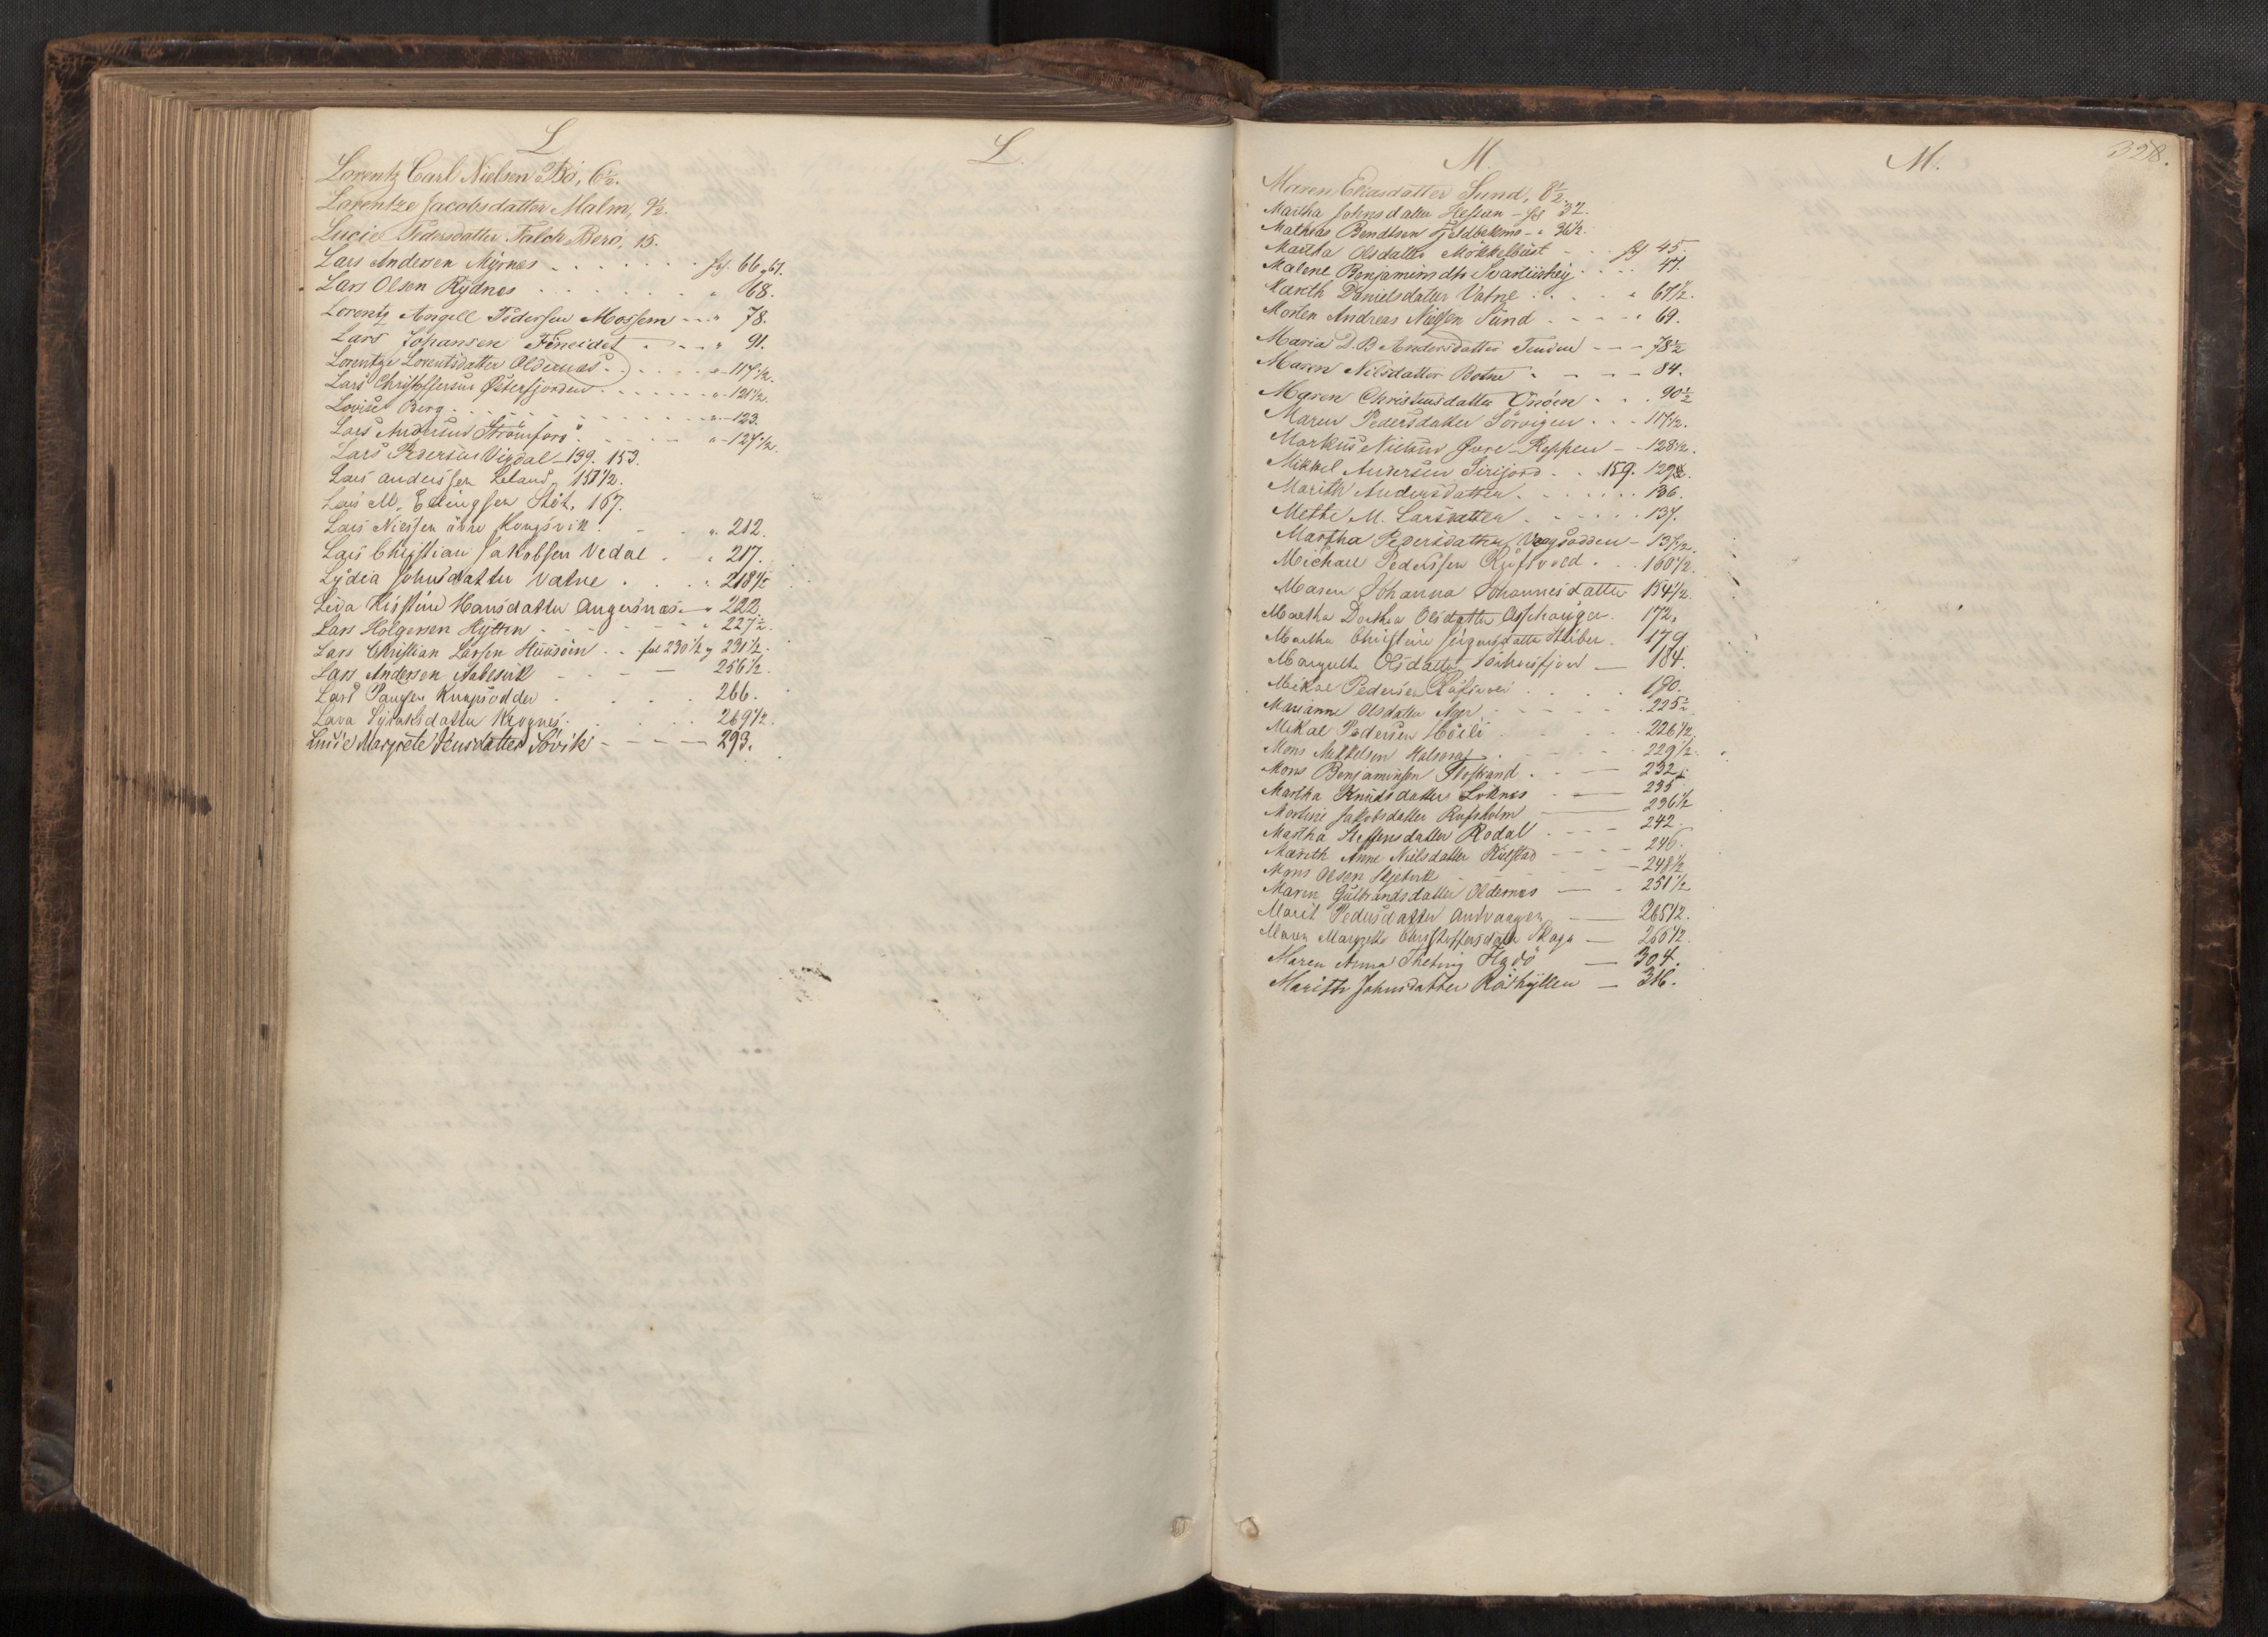 L
L.
Lorentz Carl Nielsen Bö, 6½.
Lorentze Jacobsdatter Malm, 9½.
Lucie Pedersdatter Falch Berö, 15.
Lars Andersen Myrnes . . . . . . . fol. 66 & 67.
Lars Olsen Rydnes . . . . . . . " 68.
Lorentz Angell Pedersen Mossem - - . " 78.
Lars Johansen Fineidet . . - . " 91.
Lorentze Lorentsdatter Oldernæs . . . . . . " - 117½.
Lars Christoffersen Østerfjorden . . . . . . . " - 121½.
Lovise Berg . . . . . . . . . . . " - 123.
Lars Andersen Strömfors . . . . . " - 127½.
Lars Pedersen Vigdal - 139. 153.
Lars Anderssen Leland, 157½.
Lars M. Ellingsen Stöt, 167.
Lars Nilssen övre Kongsvik . - - " 212.
Lars Christian Jakobsen Vedal . . " 217.
Lydia Johnsdatter Vatne . . . . " 218½
Kirstine Hansdatter Angersnæs - " 222.
Lars Holgersen Hytten - - - - - - " 227½.
Lars Christian Larsen Huusöen . . fol 230½ & 231½.
Lars Andersen Aabesvik - - - - 256½.
Lars . . . . 266.
Lava . . . . . 269½.
Lucie Margrete Jensdatter Sövik - - - - 293.
M.
M.
328.
Maren Eliasdatter Sund, 8½.
Martha Johnsdatter Hessan - fol 32.
Mathias Bendtsen Fjeldbekmo - " 36½.
Martha Olsdatter Mökkelbust - . . fol 45.
Malene Benjaminsdtr Svartiishej . . . . 47.
Marith Danielsdatter Vatne . . . . " 67½.
Morten Andreas Nielsen Sund . - - - " 69.
Maria D. B. Andersdatter - - - 78½
Maren Nilsdatter Botne . - - - 84.
Maren Christensdatter Onöen . . . 90½
Maren Pedersdatter Sörvigen . . - 117½.
Markus Nielsen Øvre-Reppen - - 128½.
Mikkel Andersen Sirijord . . 159. 129½.
Marith Andersdatter . . . . . . 136.
Mette M. Larsdatter . . . . . . 137.
Martha Pedersdatter Vaagsodden - 137½.
Michael Pederssen Röfsvold . . . 160½.
Maren Johanna Johannesdatter 154½.
Martha Dorthea Olsdatter Asphauga . 172.
Martha Christine . 179
Margrethe Olsdatter - 184.
Mikal Pedersen . . . . 190.
Marianne Olsdatter Ager - - - - . 225½
Mikal Pedersen Höili . . . . . 226½.
Mons Mikkelsen Halseng . . - - - 229½.
Mons Benjaminsen . - — 232.
Martha Knudsdatter Löknes . — 235
Martine Jakobsdatter — 236½
Martha Steffensdatter Rodal . - - - 242.
Marith Anne Nielsdatter Kulstad - - - - 246.
Mons Olsen - - - - - 248½
Maren Gulbrandsdatter Oldernes — - 251½
Marit Pedersdatter Andvaagen — 265½.
Maren Margrethe Christoffersdatter Skaga — 266½.
Maren Anna — 304.
Marith Johnsdatter Röshytten — 316.